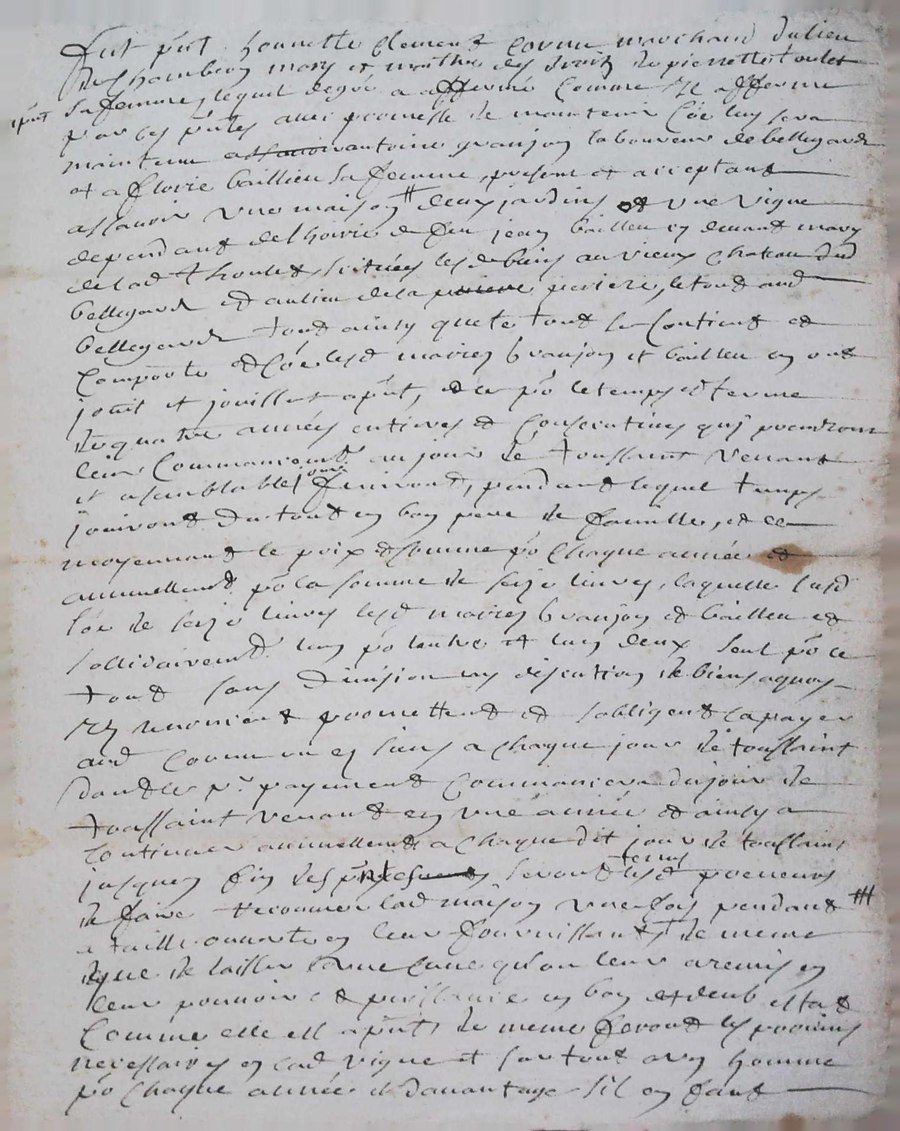 fut p̃nt honnette Clement Cornu marchand du lieu
de Chambeon mary et maithre des droits de pierrette toulet
p̃nt sa femme, lequel de gré a affermé Comme il afferme
par ces p̃ntes avec promesse de maintenir Coe luy sera
maintenu assauoir antoine granjon laboureur de bellegarde
et a florie baillieu sa femme, present et acceptant
assauoir vne maison # deux jardins et vne vigne
dependant de lhoirie de feu jean baillieu en viuant mary
de lad toulet, scituées lesd biens au vieux chateau dud
bellegarde et au lieu de la periere, le tout aud
bellegarde tout ainsy que le tout se Contient et
Comporte et Coe lesd mariez granjon et baillieu en ont
jouit et jouissent ap̃nt, et ce po le temps et terme
de quatre années entieres et Consecutiues quy prendront
leur Commancemt au jour de toussaint venant
et a semblable jour finiront, pendant lequel temps
jouiront du tout en bon pere de famille, et ce
moyennant le prix et somme po chaque année et
annuellement po la somme de seize liures, laquelle susd
soe de seize liures lesd mariez granjon et baillieu et
sollidairemt lun po lautre et lun deux seul po le
tout sans diuision ny discution de biens a quoy
ils renoncent promettent et sobligent a payer
aud Cornu ou es siens a chaque jour de toussaint
dont le pr payement Commancera du jour de
toussaint venant en vne année et ainsy a
Continuer annuellemt a chaque dit jour de toussaint
jusques fin des p̃ntes seront tenus lesd preneurs
de faire recouurir lad maison vne fois pendant #
a taille ouuerte en leur fournissant, de meme
que de laisser la cuue qu'on leur a remis en
leur pouuoir et puissance en bon et deub estat
Comme elle est ap̃nt, de meme feront les prouins
necessaires en lad vigne et sur tout a vn homme
po chaque année et dauantage sil en faut